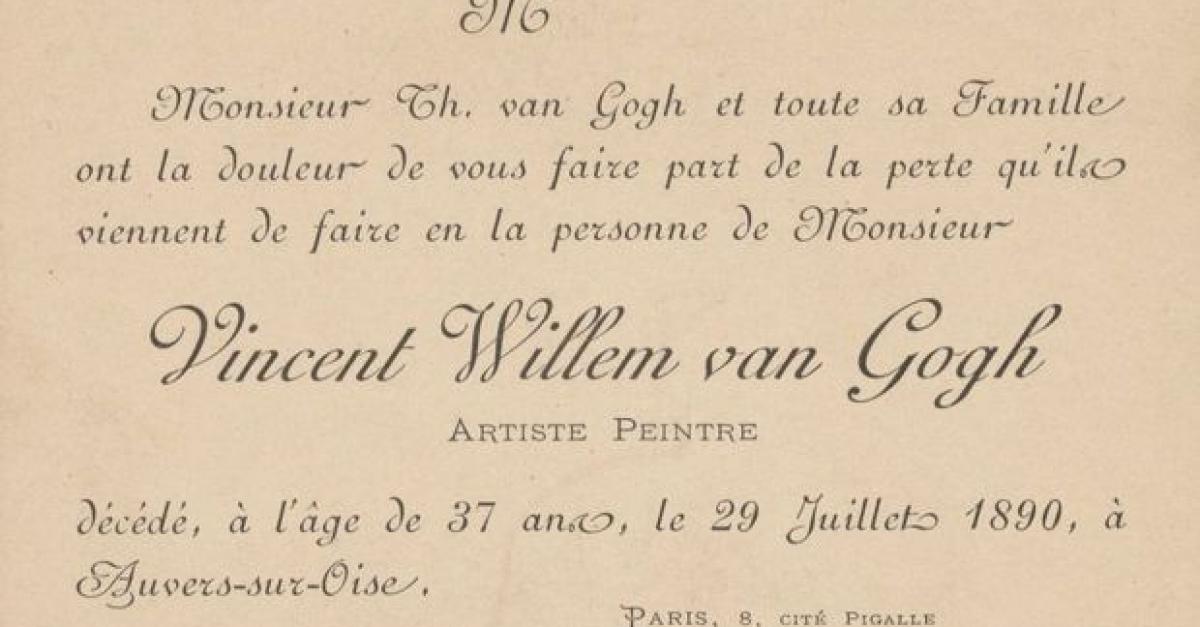 M
Monsieur Th. van Gogh et toute sa Famille
ont la douleur de vous faire part de la perte qu'ils
viennent de faire en la personne de Monsieur
Vincent Willem van Gogh
ARTISTE PEINTRE
décédé, à l'âge de 37 ans, le 29 Juillet 1890, à
Auvers-sur-Oise.
PARIS, 8, CITÉ PIGALLE